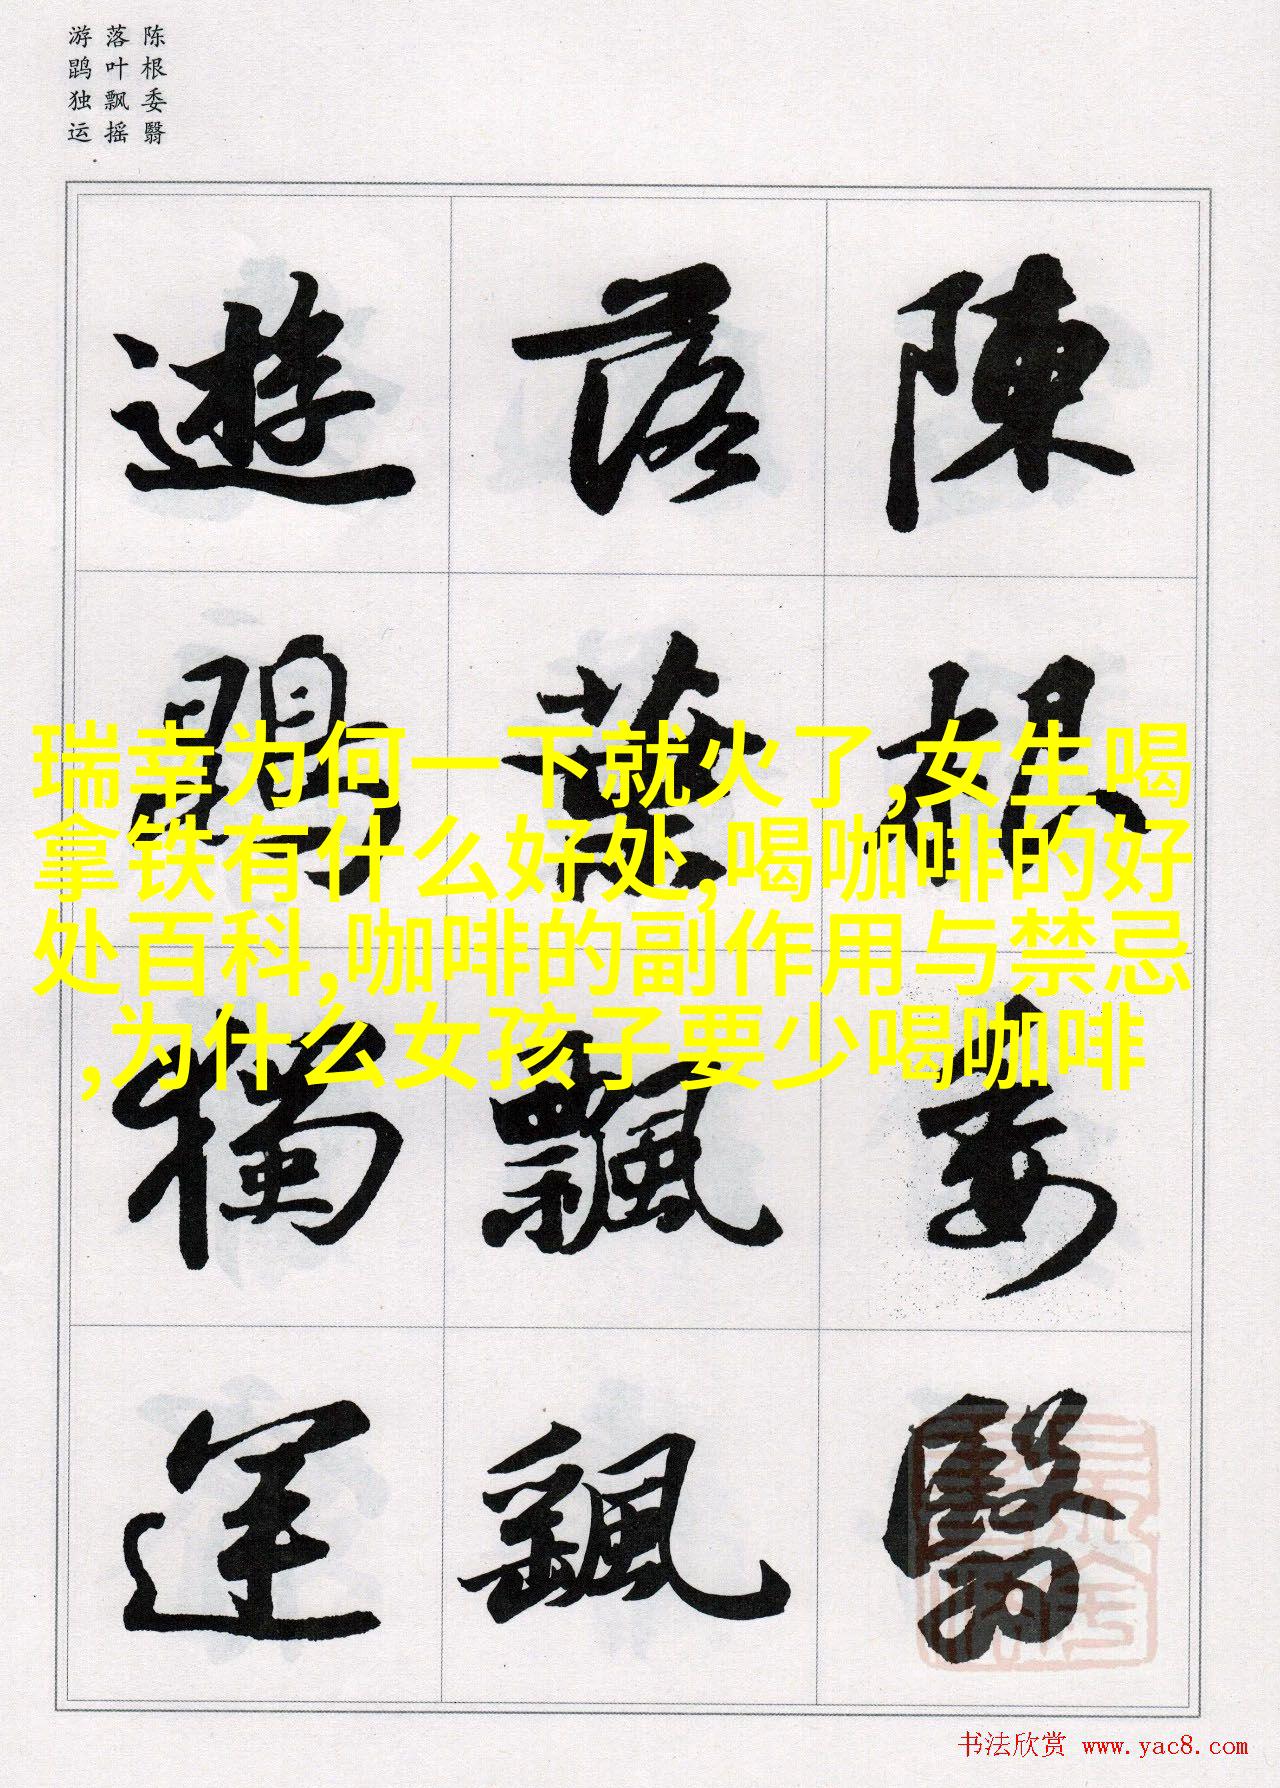 陈根委翳
落叶飘摇
游鹍独运
陳根委翳
落葉飄颻
遊鵾獨運
瑞幸为何一下就火了,女生喝
拿铁有什么好处,喝咖啡的好
处百科,咖啡的副作用与禁忌
,为什么女孩子要少喝咖啡
书法欣赏 www.yac8.com